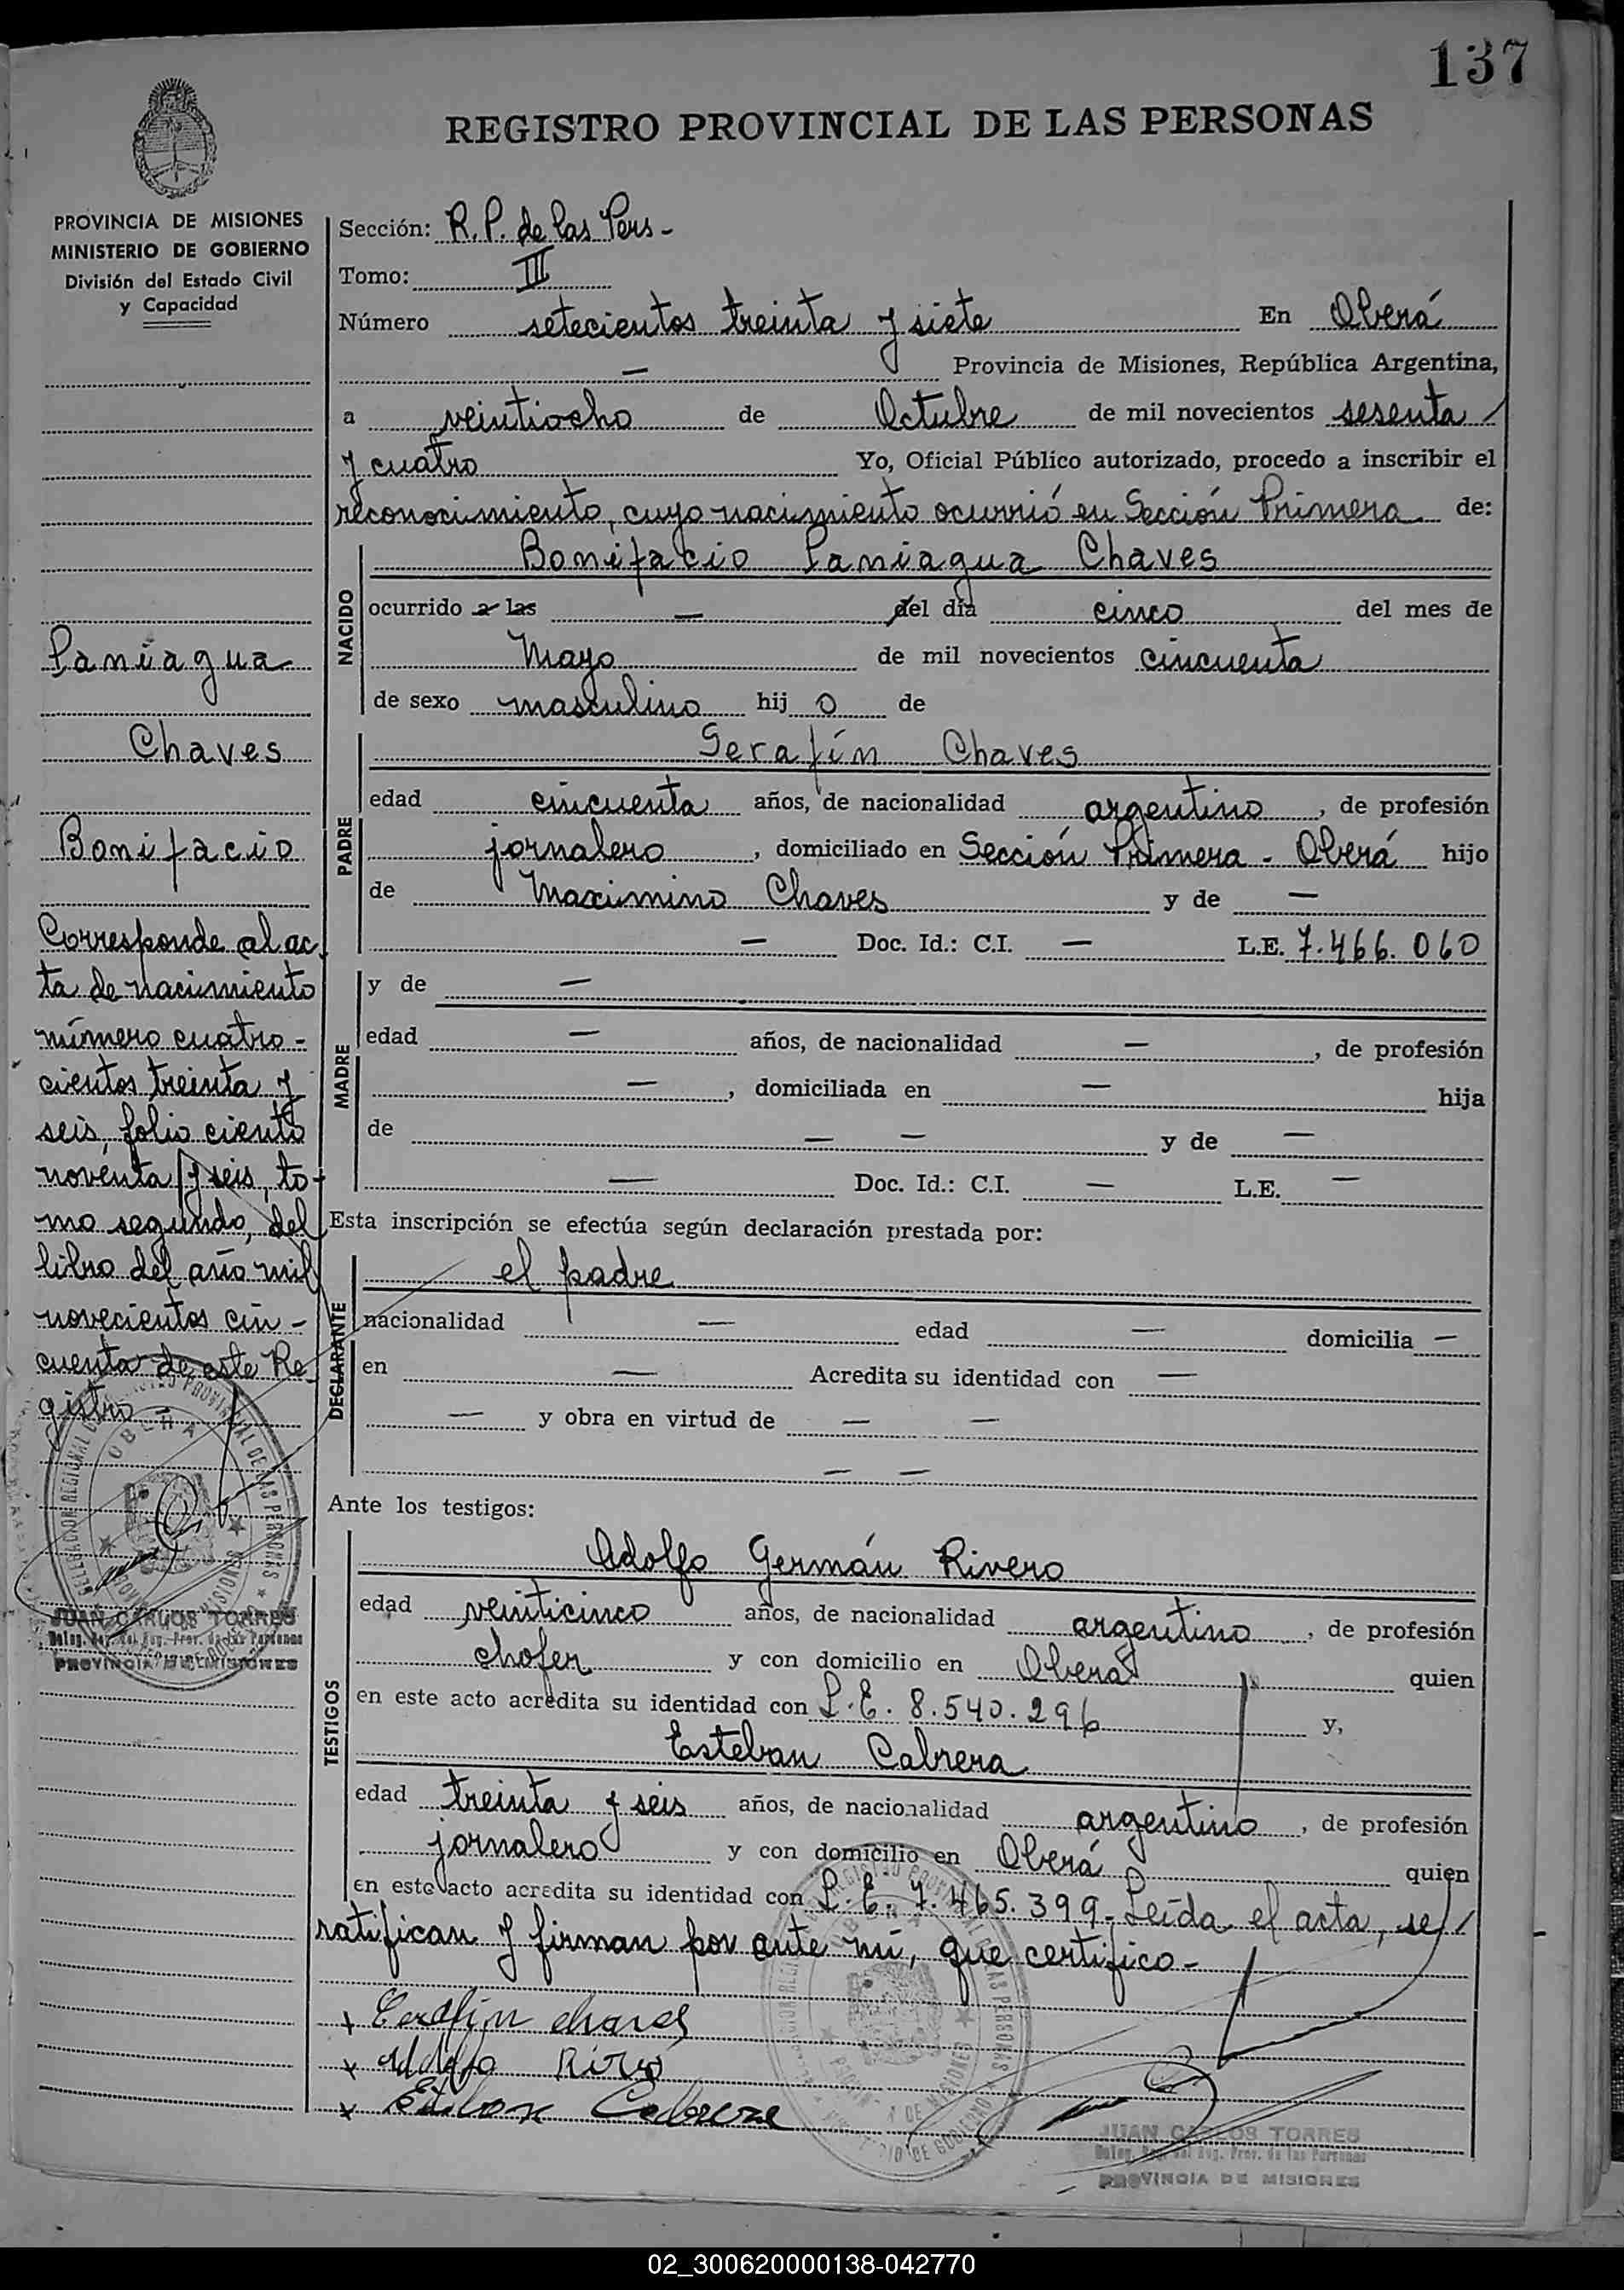 137
REGISTRO PROVINCIAL DE LAS PERSONAS
PROVINCIA DE MISIONES
MINISTERIO DE GOBIERNO
División del Estado Civil
y Capacidad
Paniagua
Chaves
Bonifacio
Corresponde al ac
ta de nacimiento
número cuatro-
cientos treinta y
seis, folio ciento
noventa y seis, to-
mo segundo, del
libro del año mil
novecientos cin-
cuenta de este Re-
gistro -
JUAN CARLOS TORRES
Deleg. Reg. del Reg. Prov. de las Personas
PROVINCIA DE MISIONES
Sección: R.P. de las Pers-
Tomo: III
Número setecientos treinta y siete En Oberá
— Provincia de Misiones, República Argentina,
a veintiocho de Octubre de mil novecientos sesenta
y cuatro Yo, Oficial Público autorizado, procedo a inscribir el
reconocimiento, cuyo nacimiento ocurrió en Sección Primera de:
NACIDO
Bonifacio Paniagua Chaves
ocurrido a las — del día cinco del mes de
Mayo de mil novecientos cincuenta
de sexo masculino hij o de
PADRE
Serafín Chaves
edad cincuenta años, de nacionalidad argentino, de profesión
jornalero, domiciliado en Sección Primera - Oberá hijo
de Maximino Chaves y de —
— Doc. Id.: C.I. — L.E. 7.466.060
MADRE
y de —
edad — años, de nacionalidad —, de profesión
—, domiciliada en — hija
de — — y de —
— Doc. Id.: C.I. — L.E. —
Esta inscripción se efectúa según declaración prestada por:
DECLARANTE
el padre
nacionalidad — edad — domicilia —
en — Acredita su identidad con —
— y obra en virtud de — —
— —
Ante los testigos:
TESTIGOS
Adolfo Germán Rivero
edad veinticinco años, de nacionalidad argentino, de profesión
chofer y con domicilio en Oberá quien
en este acto acredita su identidad con L.E. 8.540.296 y,
Esteban Cabrera
edad treinta y seis años, de nacionalidad argentino, de profesión
jornalero y con domicilio en Oberá quien
en este acto acredita su identidad con L.E. 7.465.399- Leída el acta, se
ratifican y firman por ante mí, que certifico-
JUAN CARLOS TORRES
Deleg. Reg. del Reg. Prov. de las Personas
PROVINCIA DE MISIONES
02_300620000138-042770